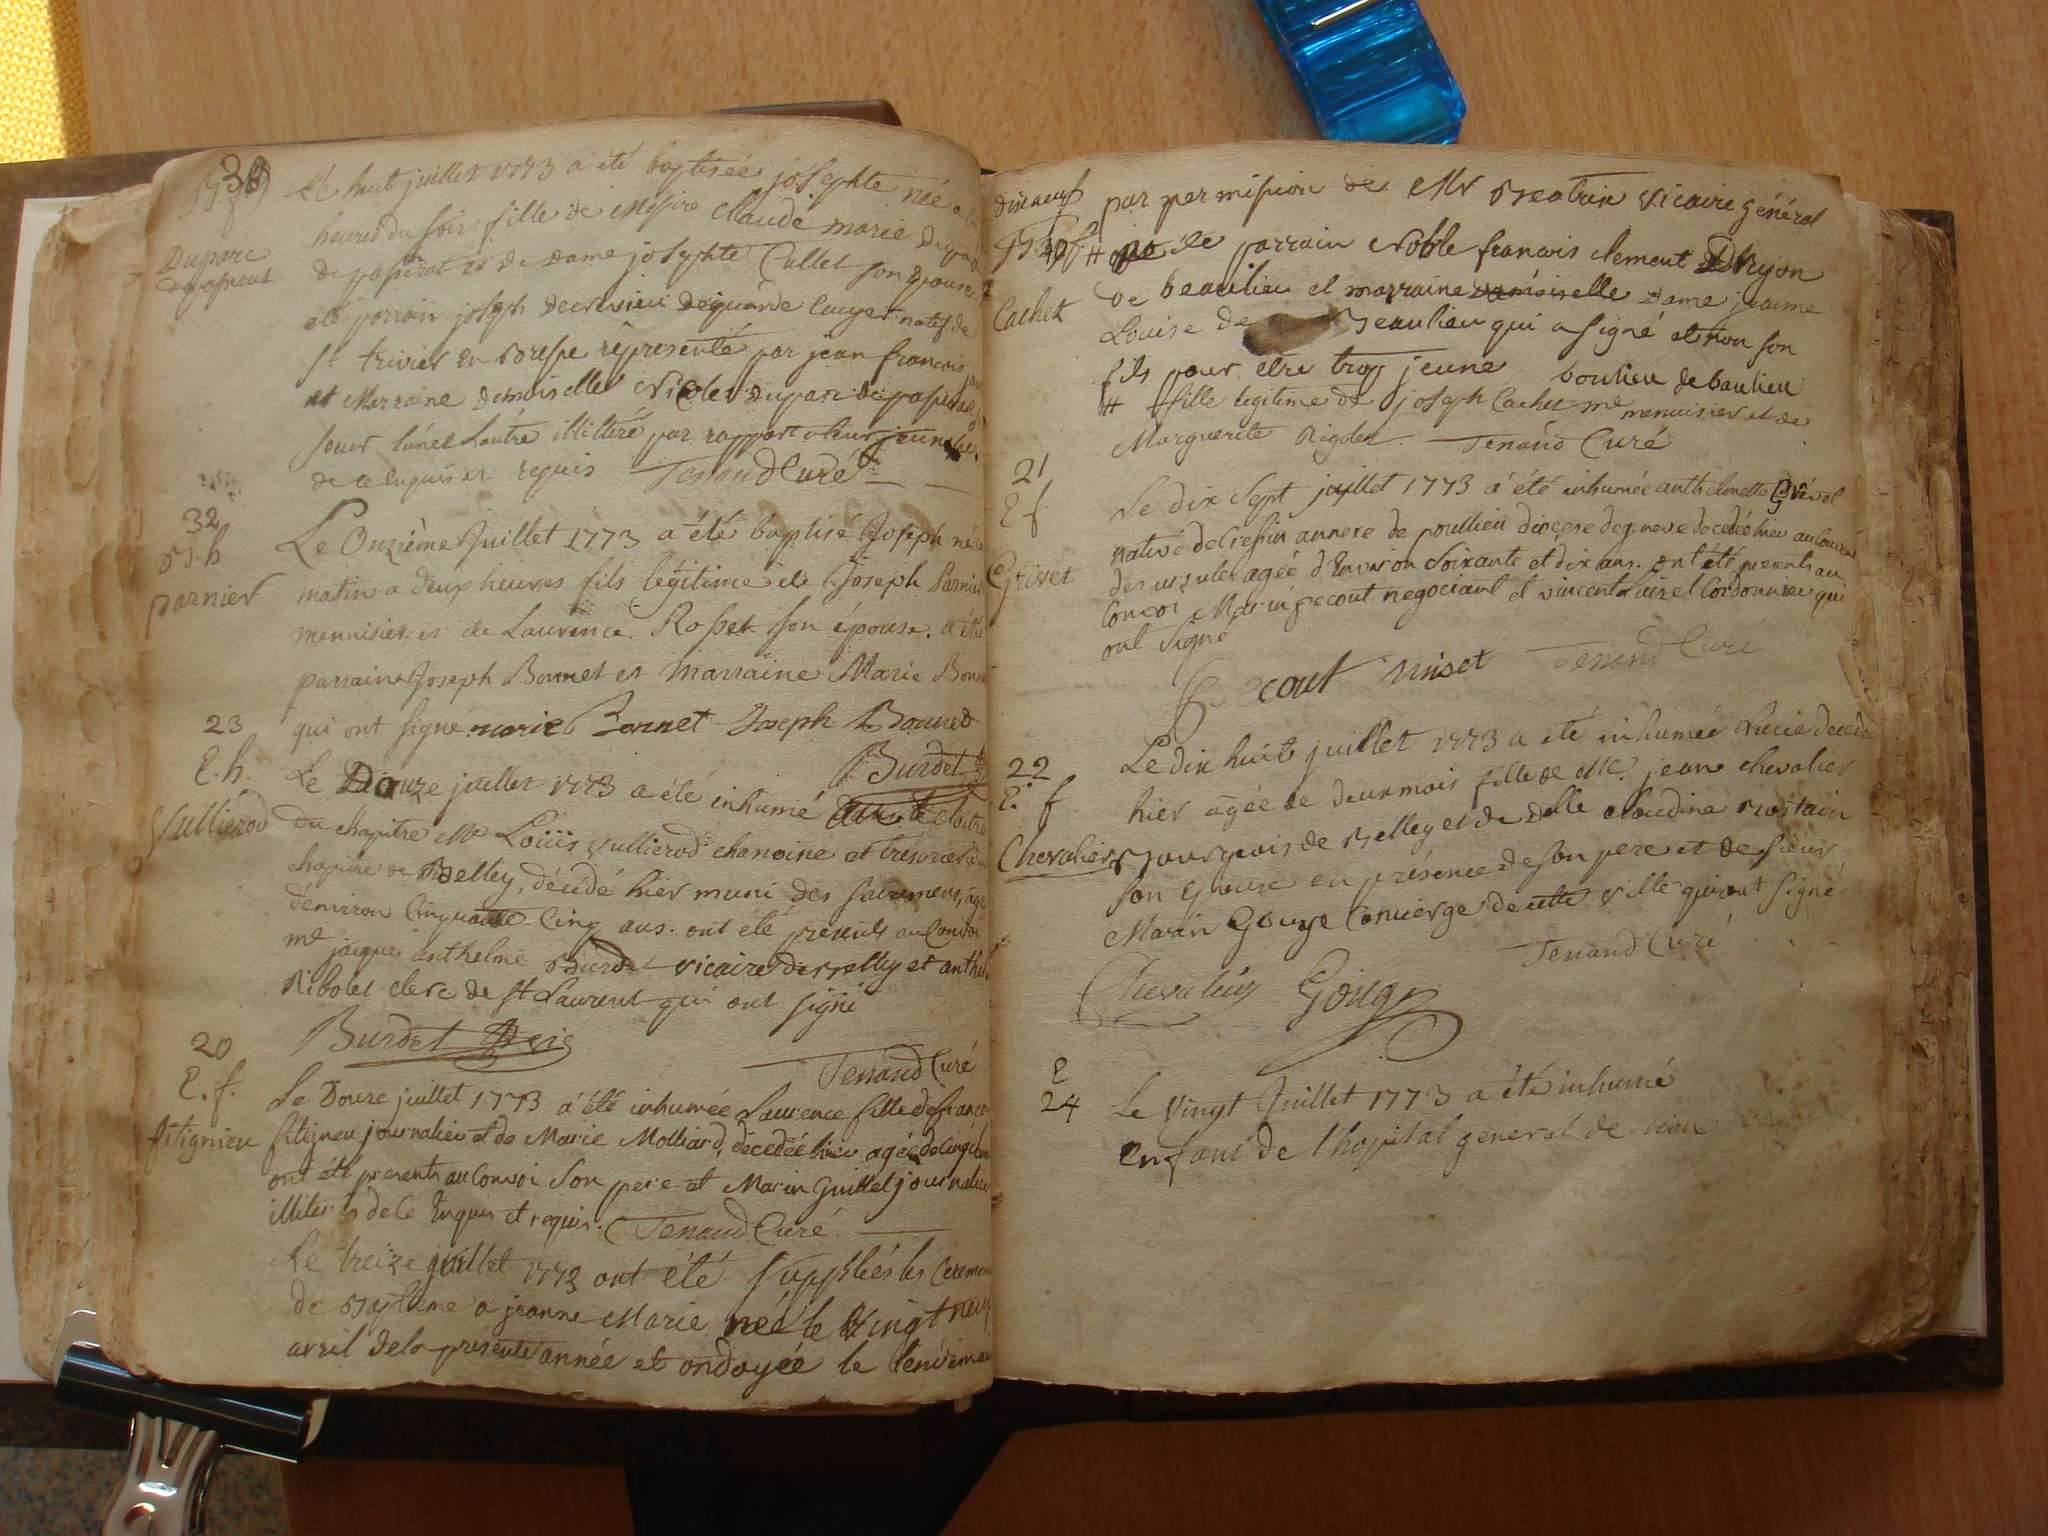 39
B. f
Duparc
depasserat
Le huit juillet 1773 a été baptisée josephte née a
heures du soir fille de Messire Claude marie
de passerat et de Dame josephte Cullet son Epouse
été parrain joseph decrevieu escuyer natif de
St trivier En Bresse représenté par jean francois
et Marraine Demoiselle Nicole duparc de passerat
soeur lúne Lautre illitéré par rapport a leur jeunesse
de ce Enquis et requis Tenand Curé
32
B. h
parnier
Le Onzième Juillet 1773 a été baptisé Joseph né
matin a deux heures fils légitime de Joseph Parnier
menuisier et de Laurence Rosset son épouse. a été
parrain Joseph Bonnet et marraine Marie Bonnet
qui ont signé marie Bonnet Joseph Bonnet
Burdet
23
E. h.
Vullierod
Le Douze juillet 1773 a été inhumé dans le cloitre
du chapitre Mre Loüis Vullierod chanoine et trésorier du
chapitre de Belley, décédé hier muni des sacremens, agé
d'environ Cinquante Cinq ans. ont été présents au Convoi
me jacques anthelme Burdet vicaire de Belley et anthelme
Ribolet clerc de St Laurent qui ont signé
Burdet Vicr
Tenand Curé
20
E. f.
fitignieu
Le Douze juillet 1773 a été inhumée Laurence fille de francois
fitigneu journalier et de Marie Molliard, décedée hier agée de cinq
ont été presents au Convoi son pere et Marin Guillet journalier
illiterés de ce Enquis et requis. Tenand Curé
Le treize juillet 1773 ont été suppléés les Ceremonies
de Baptême a jeanne Marie née le Vingt neuf
avril de la presente année et ondoyée le lendemain
dix neuf
B. f
Cachet
par permission de Mr Beatrix vicaire général
# a été parrain Noble francois clement Dhyon
de beaulieu et marraine demoiselle Dame jeanne
Louise de Beaulieu qui a signé et non son
fils pour etre trop jeune boulieu de baulieu
# fille legitime de joseph Cachet me menuisier et de
Marguerite Rigolet. Tenand Curé
21
E f
Grivet
Le dix sept juillet 1773 a été inhumée anthelmette Grivet
native de Cressin annexe de poullieu diocese de geneve decedée hier au couvent
des ursules agée d'Environ Soixante et dix ans. ont été presents au
Convoi Marin pecout negociant et vincent Cordonnier qui
ont signé
Pecout Tenand Curé
22
E. f
Chevalier
Le dix huit juillet 1773 a été inhumée Lucie decedée
hier agée de deux mois fille de Me. jean chevalier
Bourgeois de Belley et de Delle claudine Rostain
son Epouse en présence de son pere et de sieur
Marin Gouge Concierge de cette ville qui ont signé
Tenand Curé
Chevalier Gouge
E
24
Le Vingt Juillet 1773 a été inhumé
enfant de l'hopital general de lion